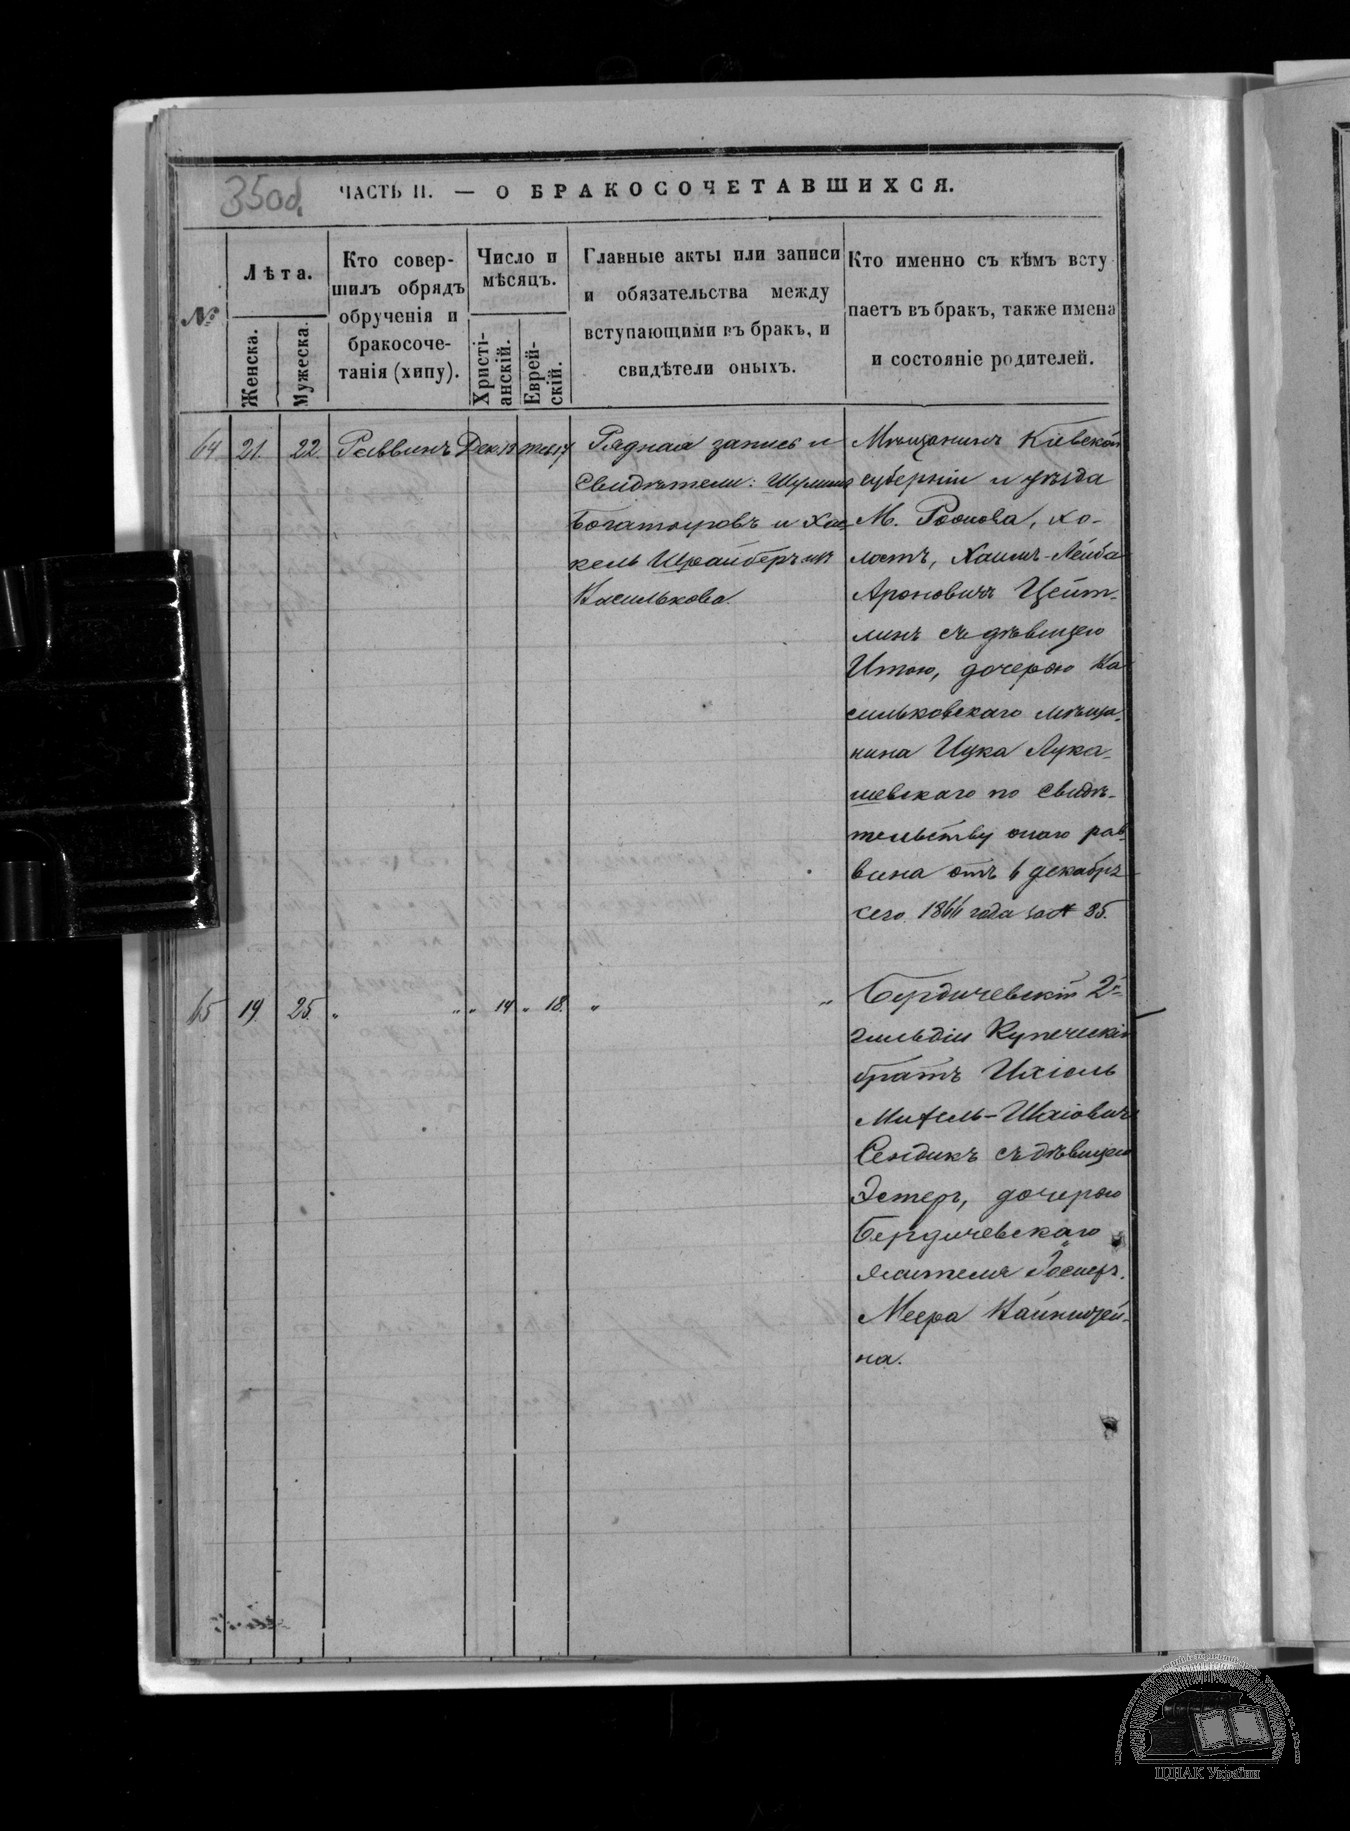 35об.
ЧАСТЬ II. — О БРАКОСОЧЕТАВШИХСЯ.
№
Лѣта.
Женска.
Мужеска.
Кто совер-
шилъ обрядъ
обрученія и
бракосоче-
танія (хипу).
Число и
мѣсяцъ.
Христі-
анскій.
Еврей-
скій.
Главные акты или записи
и обязательства между
вступающими въ бракъ, и
свидѣтели оныхъ.
Кто именно съ кѣмъ всту
паетъ въ бракъ, также имена
и состояніе родителей.
64 21. 22. Раввинъ Дек. 17
Рядная запись и
Свидѣтели:
Богатыровъ и Хас
кель Шрайберъ
Василькова.
Мѣщанинъ Кіевской
губерніи и уѣзда
М. хо-
лостъ, Хаимъ-Лейба
Ароновичъ Цейт-
линъ съ дѣвицею
Итою, дочерью Ва
сильковскаго мѣща-
нина Ицка Лука-
шевскаго по свидѣ-
тельству онаго рав-
вина отъ 6 декабря
сего 1866 года за № 35.
65 19. 25. " " " 14 " 18. " "
Бердичевскій 2й
гильдіи Купеческій
братъ Ихіель
Сендикъ съ дѣвицею
Эстеръ, дочерью
Бердичевскаго
жителя
Меера Вайнштей-
на.
ЦДІАК України